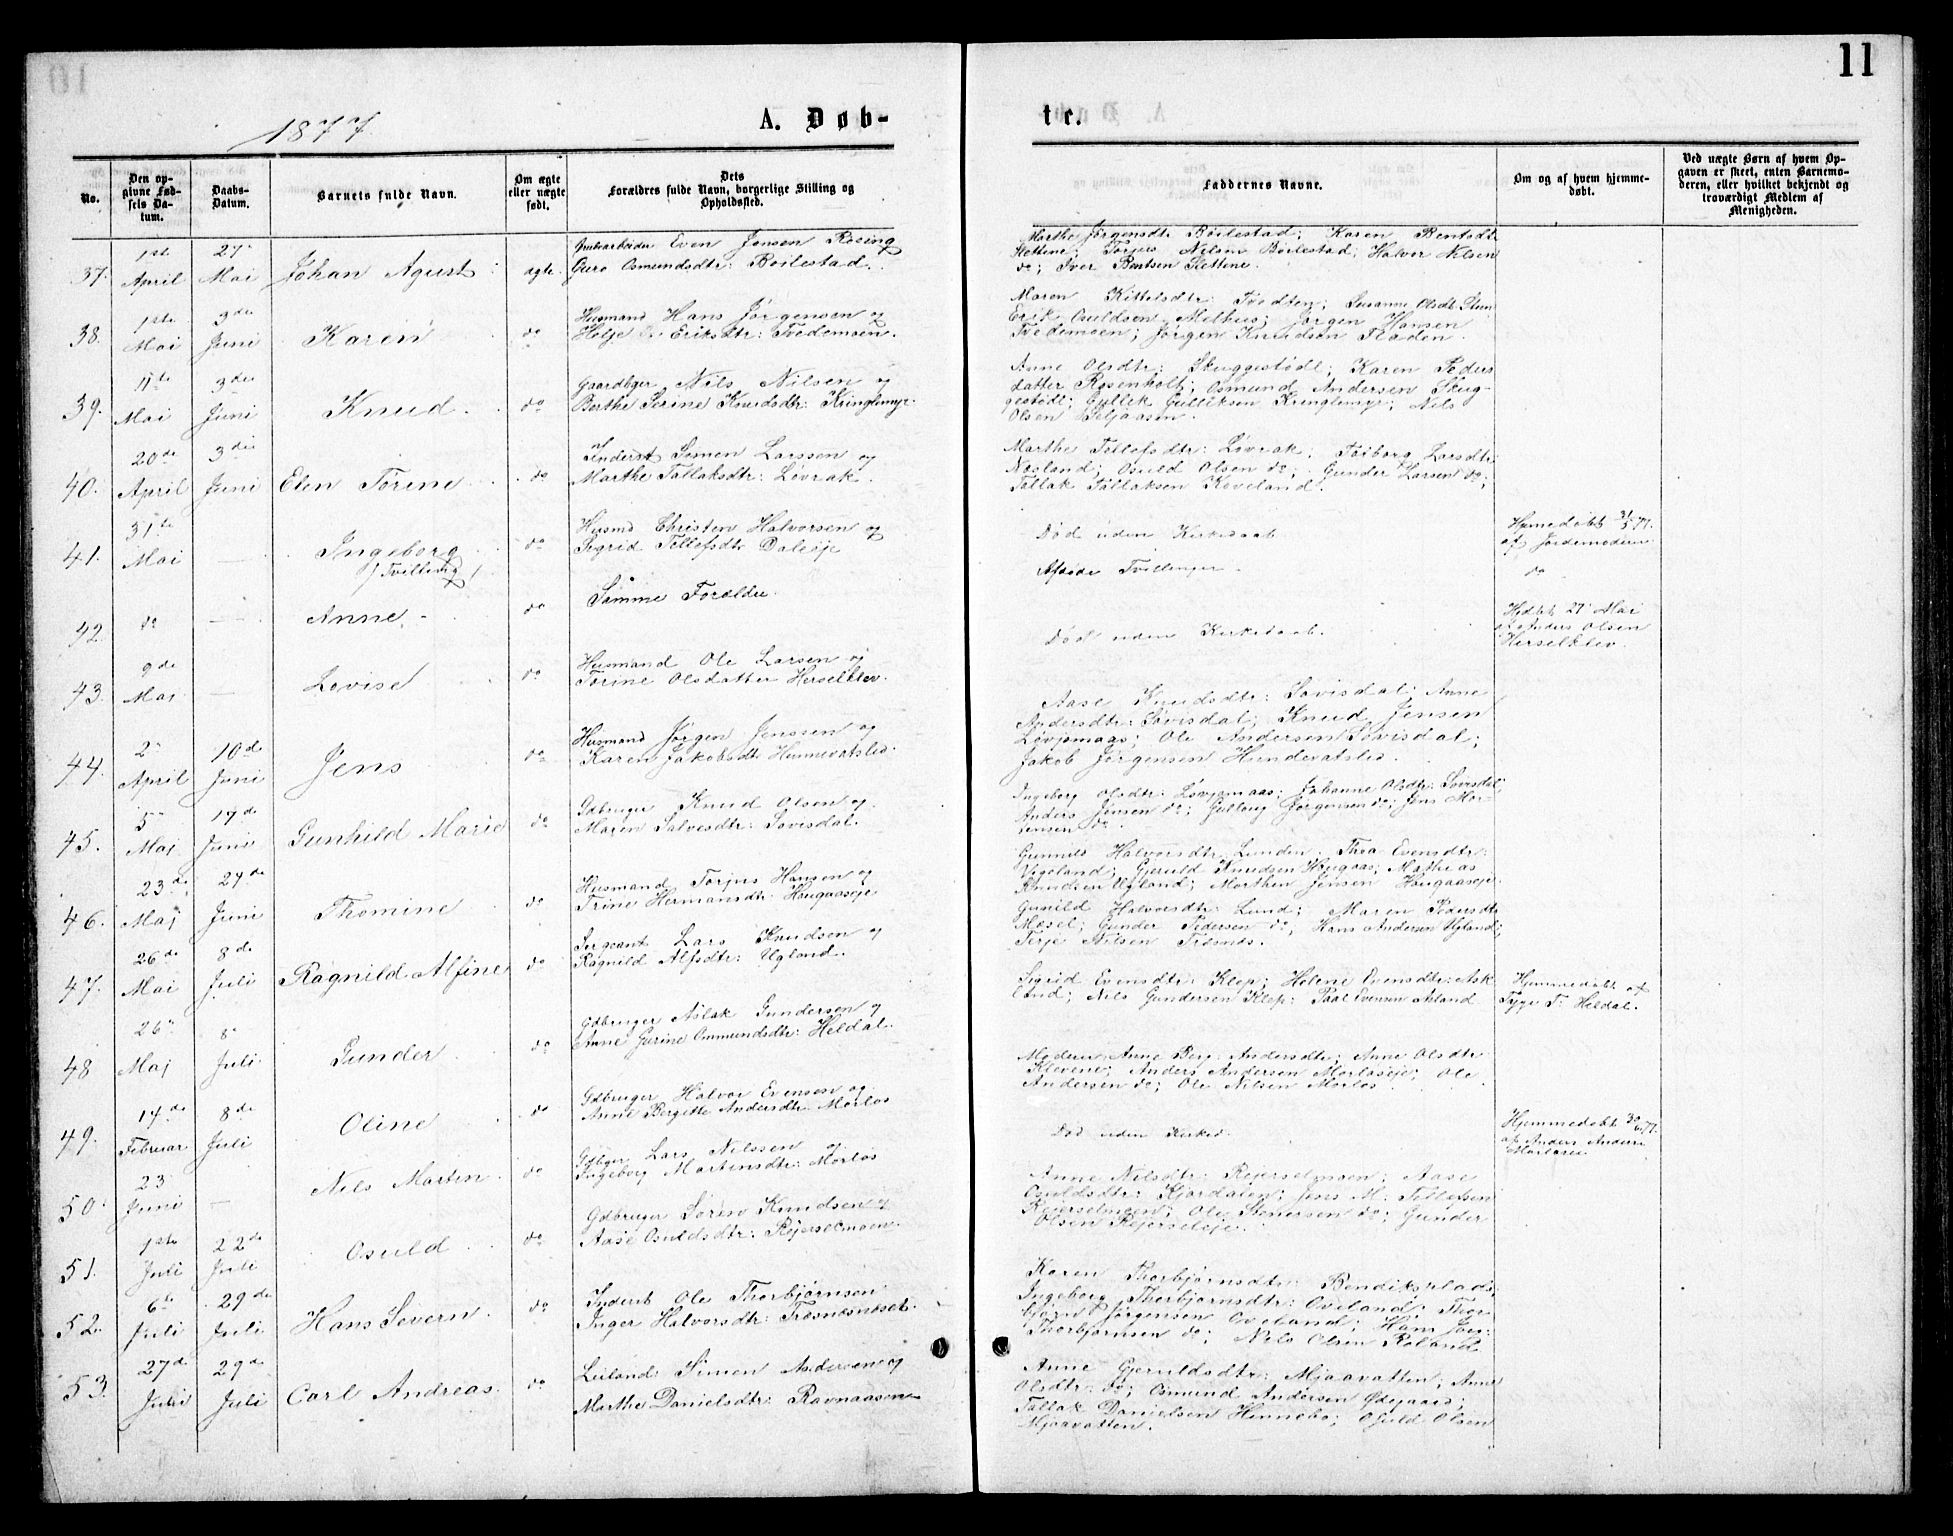 11
1877
A. Døb-
te.
No.
Den op-
givne Fød-
sels Da-
tum.
Daabs-
Datum.
Barnets fulde Navn.
Om ægte
eller uægte
født.
Dets
Forældres fulde Navn, borgerlige Stilling og
Opholdssted.
Faddernes Navne.
Om og af hvem hjemme-
døbt.
Ved uægte Børn af hvem Op-
gaven er skeet, enten Barnemo-
deren, eller hvilket bekjendt og
troværdigt Medlem af
Menigheden.
37. 1ste April 27 Mai Johan Agust ægte.
Grubearbeider Even Jensen Rosing
Guro Osmundsdtr: Böilestad.
Marthe Jörgensdtr Böilestad; Karen Bentsdtr
Slettene; Torjus Nilsen Böilestad; Halvor Nilsen
do; Iver Bentsen Slettene.
38. 1ste Mai 3die Juni Karen do
Husmand Hans Jørgensen og
Helje Eriksdtr: Tvedemoen.
Maren Kittelsdtr: Tvedten; Susanne Olsdtr
Erik Osuldsen Methus; Jørgen Hansen
Tvedemoen; Jørgen Knudsen Fladen.
39. 11te Mai 3die Juni Knud. do
Gaardbger Nils Nilsen og
Berthe Serine Knudsdtr: Kringlemyr.
Anne Olsdtr: Skuggestödl; Karen Peders
datter Rosenholt; Osmund Andersen Skug-
gestödl; Gullek Gulleksen Kringlemyr; Nils
Olsen Seljaasen.
40. 20de April 3die Juni Elen Torine do
Inderst Simen Larssen og
Marthe Tallaksdtr: Løvrak.
Marthe Tellefsdtr: Løvrak; Toiborg Larsdtr
Næsland; Osuld Olsen do; Gunder Larsen do;
Tallak Tallaksen Koveland.
41. 31te Mai Ingeborg do
/Tvilling/
Husmd Christen Halvorsen og
Sigrid Tellefsdtr Dalseje
Død uden Kirkedaab
Hjemedöbt 31/5 77.
af Jordemoderen
42. do Anne. do
Samme Forældre.
Afdøde Tvillinger.
do
43. 9de Mai Lovise do
Husmand Ole Larsen og
Torine Olsdatter Herselklev.
Død uden Kirkedaab.
Hjdöbt 27 Mai
af Anders Olsen
Herselklev.
44. 2 April 10de Juni Jens do
Husmand Jørgen Jenssen og
Karen Jakobsdtr Hunnevatsled.
Aase Knudsdtr: Lovisdal; Anne
Andersdtr: Løvisdal; Knud Jensen
Løvjomaas; Ole Andersen Lovisdal;
Jakob Jörgensen Hundevatsled.
45. 5 Maj 17de Juni Gunhild Marie do
Gdbruger Knud Olsen og
Maren Salvesdtr: Lovisdal.
Ingeborg Olsdtr: Løvjomaas; Johanne Olsdtr: Lovisdal;
Anders Jensen do; Gulbrg Jørgensen do; Jens Mor-
tensen do.
46. 23de Maj 24de Juni Thomine do
Husmand Torjus Hansen og
Trine Hermansdtr: Hougaaseje
Gunnild Halvorsdtr Lunden; Thea Evensdtr:
Vegeland; Gjeruld Knudsen Hougaas; Mathias
Knudsen Ugland; Morthen Jensen Hougaaseje.
47. 26de Mai 8de Juli Ragnild Alfine do
Sergeant Lars Knudsen og
Ragnild Alfsdtr: Ugland.
Gunild Halvorsdtr: Lund; Maren Pedersdtr
Mesel; Gunder Pedersen do; Hans Andersen Ugland;
Terje Nilsen Trøsnes.
48 26 Maj 8 Juli Gunder do
Gdbruger Aslak Gundersen og
Anne Gurine Ommundsdtr: Heldal.
Sigrid Evensdtr: Klep; Helene Evensdtr: Ask
land; Nils Gundersen Klep; Paal Evensen Asland
Hjemmedöbt af
Tyge T: Heldal.
49. 14de Februar 8de Juli Oline do
Gdbruger Halvor Evensen og
Anne Bergitte Andersdtr: Mørlos
Moderen; Anne Berg: Andersdtr; Anne Olsdtr
Klevene; Anders Andersen Morlaseje; Ole
Andersen do; Ole Nilsen Mörlos.
50. 23 Juni Nils Martin. do
Gdbger Lars Nilssen og
Ingeborg Martinsdtr: Mørlos
Død uden Kirked.
Hjemmedöbt 30/6 77.
af Anders Anders
Morlaseje
51. 1ste Juli 22de Juli Osuld do
Gdbruger Sören Knudsen og
Aase Osuldsdtr: Rejerselmoen.
Anne Nilsdtr: Rejerselmoen; Aase
Osuldsdtr: Kjordalen; Jens M: Tellefsen
Rejerselmoen; Ole Stenersen do; Gunder
Olsen Rejerseleje.
52. 6te Juli 29de Juli Hans Severn. do
Inderst Ole Thorbjørnsen
Inger Halvorsdtr: Trøsnesneset.
Karen Thorbjörnsdtr: Bendiksplads
Ingeborg Thorbjørnsdtr: Oveland; Thor
bjørn Jørgensen Oveland; Hans Jør-
Thorbjørnsen do; Nils Olsen Roland
53. 27de Juli 29de Juli Carl Andreas. do
Leiland: Simen Andersen og
Marthe Danielsdtr: Ravnaasen
Anne Gjeruldsdtr: Mjaavatten; Anne
Olsdtr: do; Osmund Andersen Ødegaard;
Tallak Danielsen Hinnebo; Osuld Olsen
Mjaavatten.